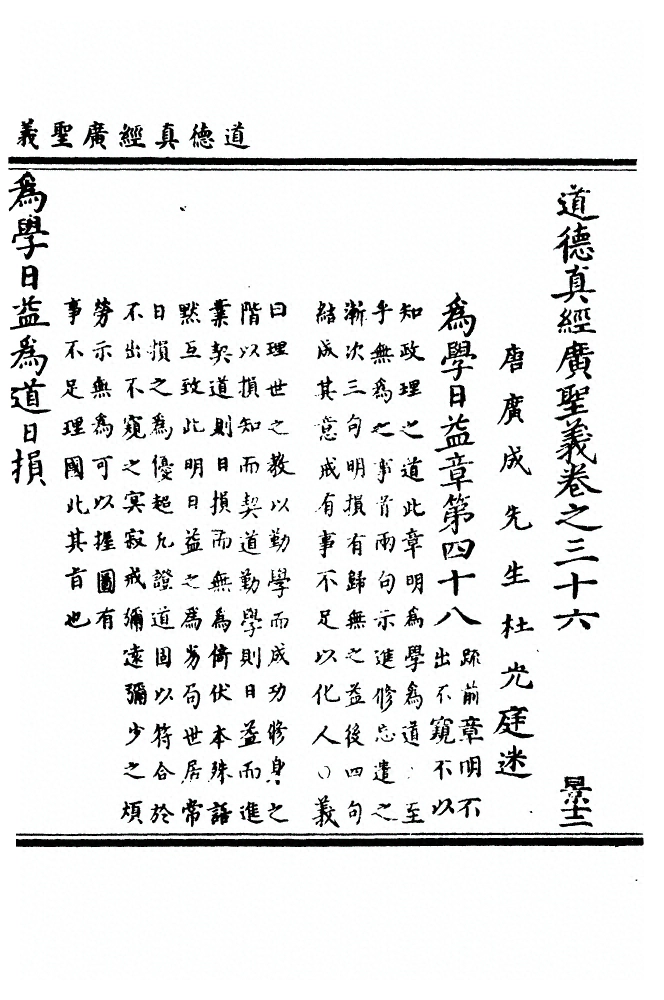 道德真經廣聖義
道德真經廣聖義卷之三十六 景十二
唐廣成先生杜光庭述
爲學日益章第四十八
疏前章明不
出不窺不以
知政理之道此章明爲學爲道至
乎無爲之事首兩句示進修忘遣之
漸次三句明損有歸無之益後四句
結成其意戒有事不足以化人○義
曰理世之教以勤學而成功修身之
階以損知而契道勤學則日益而進
業契道則日損而無爲倚伏本殊語
默互致此明日益之爲劣局世居常
日損之爲優超凡證道固以符合於
不出不窺之冥寂戒彌遠彌少之煩
勞示無爲可以握圖有
事不足理國此其旨也
爲學日益爲道日損